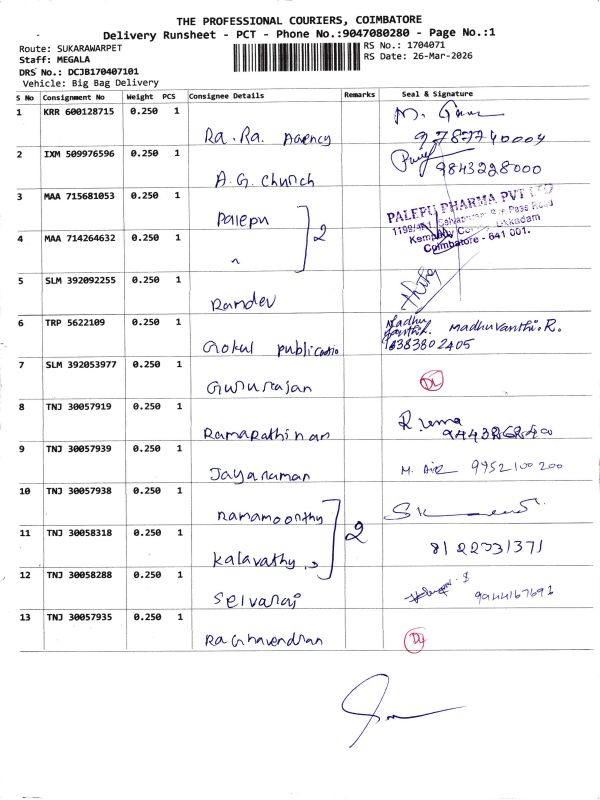 THE PROFESSIONAL COURIERS, COIMBATORE
Delivery Runsheet - PCT - Phone No.:9047080280 - Page No.:1
Route: SUKARAWARPET
RS No.: 1704071
Staff: MEGALA
RS Date: 26-Mar-2026
DRS No.: DCJB170407101
Vehicle: Big Bag Delivery
S No Consignment No Weight PCS Consignee Details Remarks Seal & Signature
1 KRR 600128715 0.250 1
Ra.Ra. Agency
2 IXM 509976596 0.250 1
A.G. Church 9843228000
3 MAA 715681053 0.250 1
Palepu 2 PALEPU PHARMA PVT LTD
4 MAA 714264632 0.250 1
Coimbatore - 641 001.
5 SLM 392092255 0.250 1
Ramdev
6 TRP 5622109 0.250 1
Madhuvanthi.R.
Gokul
7 SLM 392053977 0.250 1
Gururajan
8 TNJ 30057919 0.250 1
Ramarathinan
9 TNJ 30057939 0.250 1
Jayaraman 9952100200
10 TNJ 30057938 0.250 1
Ramamoorthy 2
11 TNJ 30058318 0.250 1
Kalavathy 8122331371
12 TNJ 30058288 0.250 1
Selvaraj 9944167691
13 TNJ 30057935 0.250 1
Raghavendran